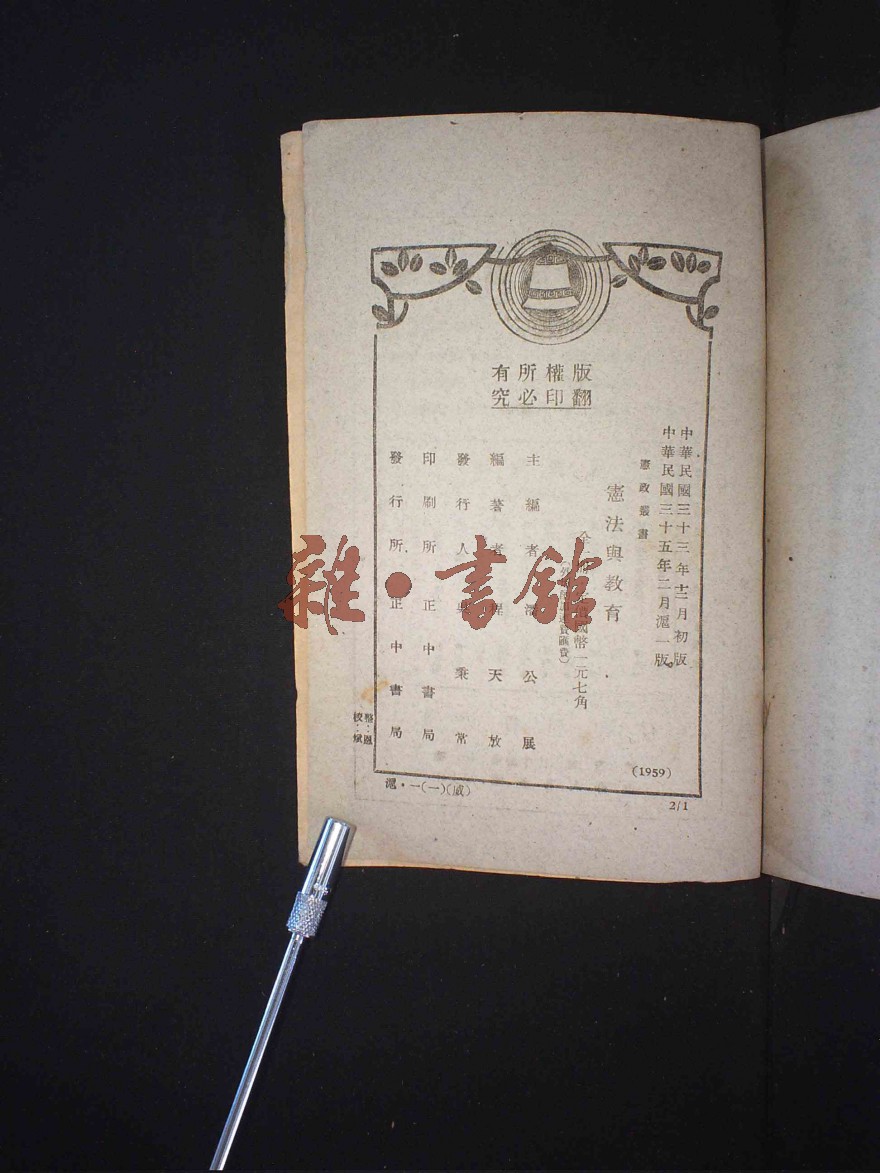 版權所有
翻印必究
中華民國三十三年十二月初版
中華民國三十五年二月滬一版
憲政叢書
憲法與教育
國幣一元七角
匯費）
主編者 潘公展
編著者 程天放
發行人 吳秉常
印刷所 正中書局
發行所 正中書局
(1959)
整．恩
校．斌
滬．一(一)(咸)
2/1
雜·書館